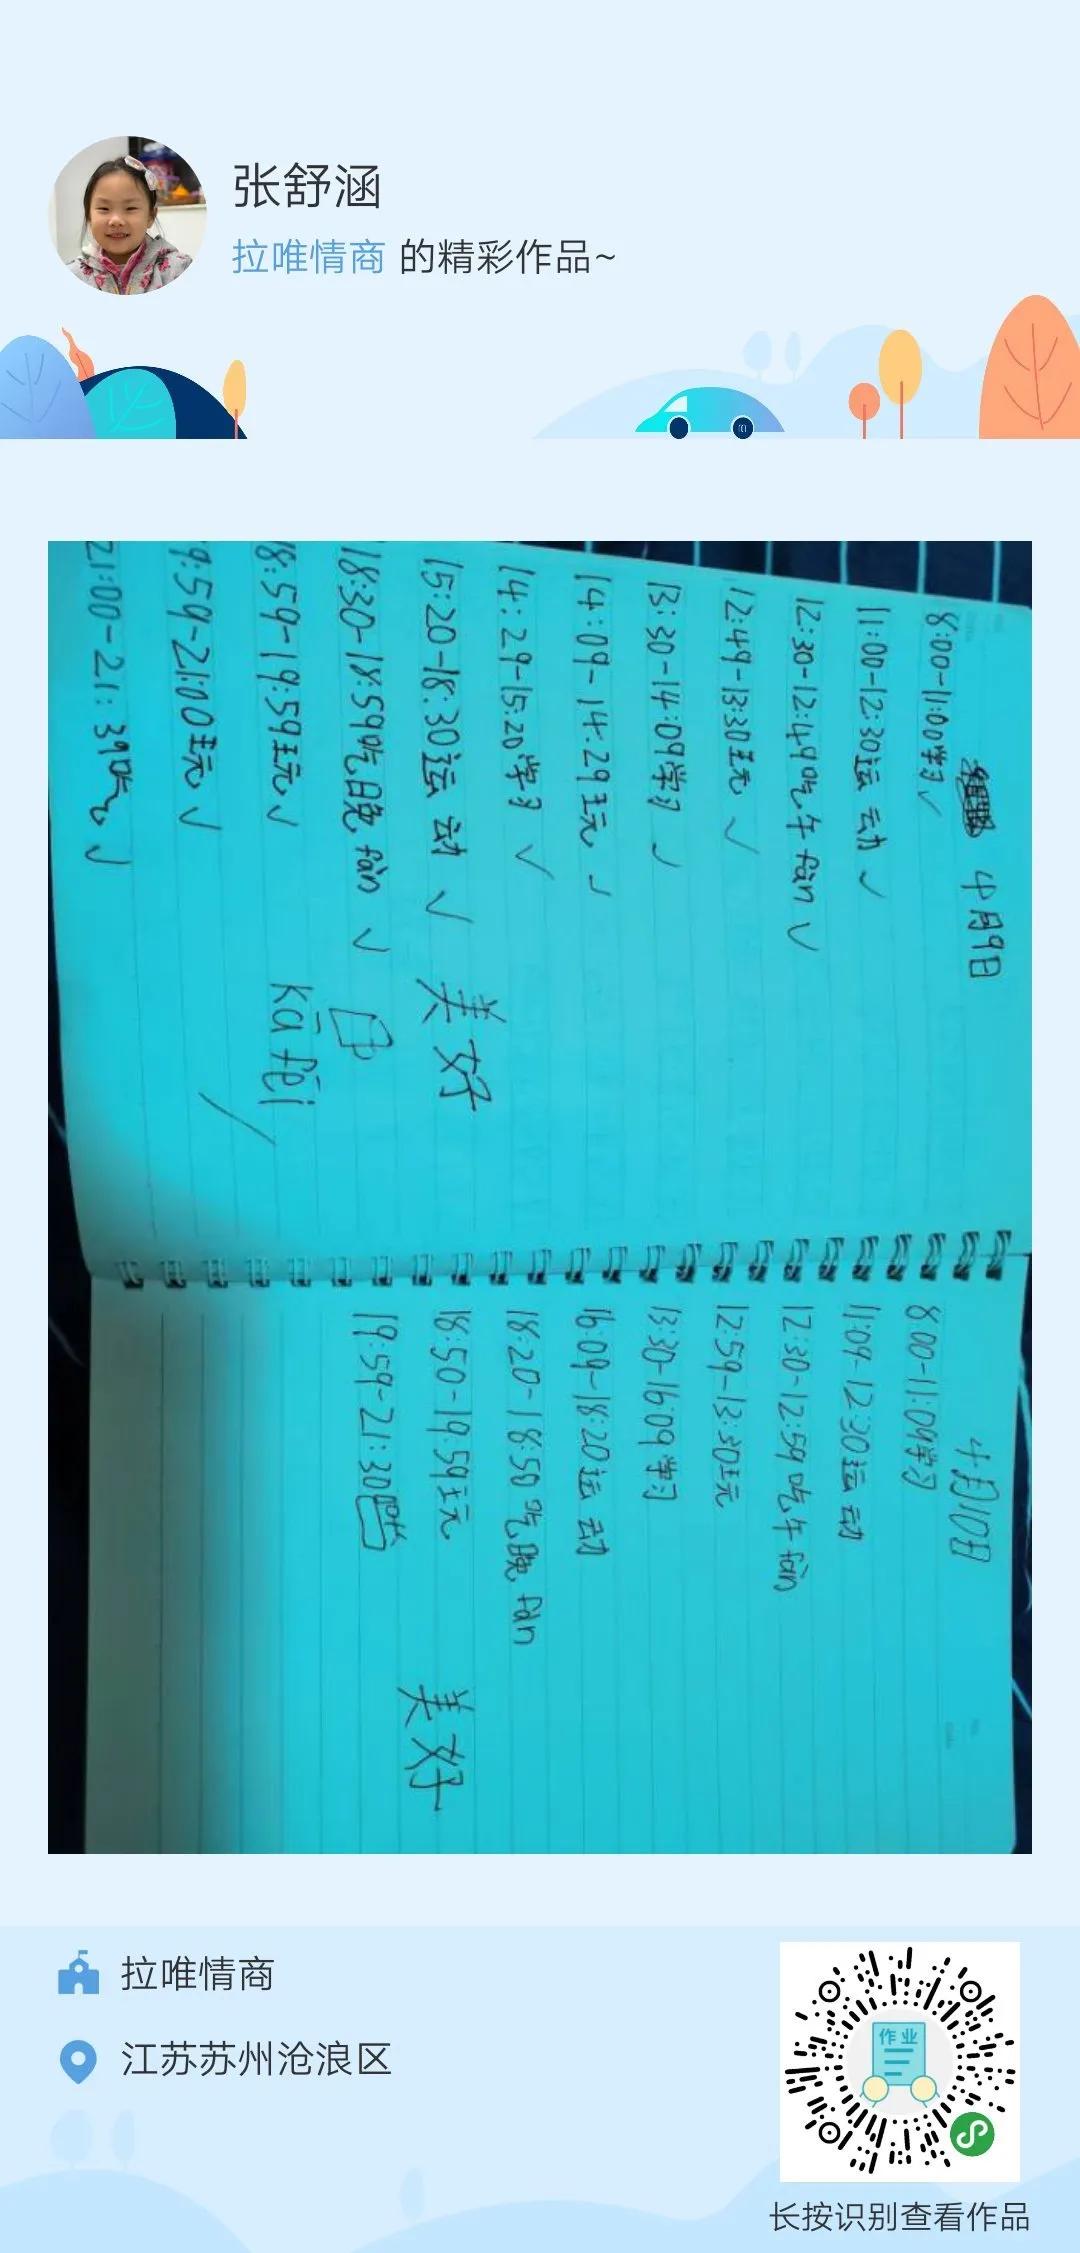 张舒涵
拉唯情商 的精彩作品~
4月9日
8:00-11:00学习✓
11:00-12:30运动✓
12:30-12:49吃午fàn✓
12:49-13:30玩✓
13:30-14:09学习✓
14:09-14:29玩✓
14:29-15:20学习✓
15:20-18:30运动✓
18:30-18:59吃晚fàn✓
18:59-19:59玩✓
9:59-21:00玩✓
21:00-21:39✓
美好
kā fēi
4月10日
8:00-11:09学习
11:09-12:30运动
12:30-12:59吃午fàn
12:59-13:30玩
13:30-16:09学习
16:09-18:20运动
18:20-18:50吃晚fàn
18:50-19:59玩
19:59-21:30
美好
拉唯情商
江苏苏州沧浪区
作业
长按识别查看作品